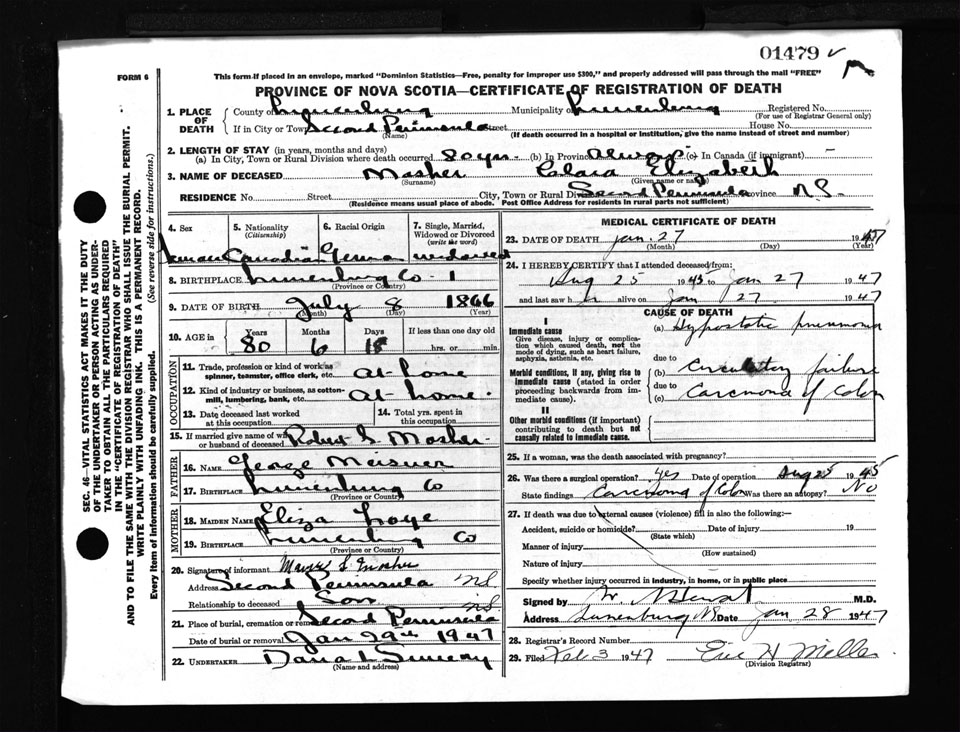 01479
FORM 6
This form if placed in an envelope, marked "Dominion Statistics—Free, penalty for improper use $300," and properly addressed will pass through the mail "FREE"
PROVINCE OF NOVA SCOTIA—CERTIFICATE OF REGISTRATION OF DEATH
SEC. 46—VITAL STATISTICS ACT MAKES IT THE DUTY
OF THE UNDERTAKER OR PERSON ACTING AS UNDER-
TAKER TO OBTAIN ALL THE PARTICULARS REQUIRED
IN THE "CERTIFICATE OF REGISTRATION OF DEATH"
AND TO FILE THE SAME WITH THE DIVISION REGISTRAR WHO SHALL ISSUE THE BURIAL PERMIT.
WRITE PLAINLY WITH UNFADING INK. THIS IS A PERMANENT RECORD.
Every item of information should be carefully supplied. (See reverse side for instructions.)
1. PLACE OF DEATH County of Lunenburg Municipality of Lunenburg Registered No.
(For use of Registrar General only)
If in City or Town Second Peninsula Street House No.
(Name) (If death occurred in a hospital or institution, give the name instead of street and number)
2. LENGTH OF STAY (in years, months and days)
(a) In City, Town or Rural Division where death occurred 80 yrs. (b) In Province always (c) In Canada (if immigrant) —
3. NAME OF DECEASED Mosher Clara Elizabeth
(Surname) (Given name or names)
RESIDENCE No. Street City, Town or Rural Division Second Peninsula Province N.S.
(Residence means usual place of abode. Post Office Address for residents in rural parts not sufficient)
4. Sex 5. Nationality (Citizenship) 6. Racial Origin 7. Single, Married, Widowed or Divorced (write the word)
Female Canadian German widowed
8. BIRTHPLACE Lunenburg Co
(Province or Country)
9. DATE OF BIRTH July 8 1866
(Month) (Day) (Year)
10. AGE in Years Months Days If less than one day old
80 6 18 hrs. or min.
OCCUPATION
11. Trade, profession or kind of work as spinner, teamster, office clerk, etc. At home
12. Kind of industry or business, as cotton-mill, lumbering, bank, etc. At home.
13. Date deceased last worked at this occupation 14. Total yrs. spent in this occupation
15. If married give name of wife or husband of deceased Robert S. Mosher
FATHER
16. NAME George Meisner
17. BIRTHPLACE Lunenburg Co
(Province or Country)
MOTHER
18. MAIDEN NAME Eliza
19. BIRTHPLACE Lunenburg Co
(Province or Country)
20. Signature of informant Mosher
Address Second Peninsula N.S.
Relationship to deceased Son
21. Place of burial, cremation or removal Second Peninsula NS
Date of burial or removal Jan 29th 1947
22. UNDERTAKER Sweeny
(Name and address)
MEDICAL CERTIFICATE OF DEATH
23. DATE OF DEATH Jan. 27 1947
(Month) (Day) (Year)
24. I HEREBY CERTIFY that I attended deceased from:
Aug 25 1945 to Jan 27 1947
and last saw her alive on Jan 27 1947
CAUSE OF DEATH
I
Immediate cause
Give disease, injury or complication which caused death, not the mode of dying, such as heart failure, asphyxia, asthenia, etc.
(a) Hypostatic pneumonia
due to
Morbid conditions, if any, giving rise to immediate cause (stated in order proceeding backwards from immediate).
(b) Circulatory failure
due to
(c) Carcinoma of Colon
II
Other morbid conditions (if important) contributing to death but not causally related to immediate cause.
25. If a woman, was the death associated with pregnancy?
26. Was there a surgical operation? yes Date of operation Aug 25 1945
State findings Carcinoma of Colon Was there an autopsy? No
27. If death was due to external causes (violence) fill in also the following:—
Accident, suicide or homicide? Date of injury 19
(State which)
Manner of injury
(How sustained)
Nature of injury
Specify whether injury occurred in industry, in home, or in public place
Signed by M.D.
Address Lunenburg NS Date Jan 28 1947
28. Registrar's Record Number
29. Filed Feb 3 1947 Eric H Miller
(Division Registrar)